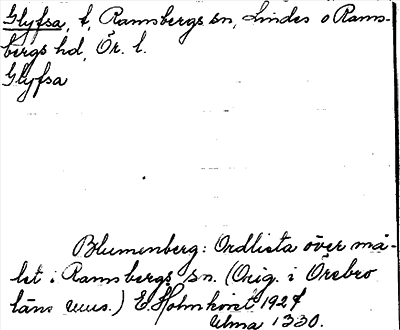 Glyfsa, t, Ramsbergs sn, Lindes o Rams-
bergs hd, Ör. l.
Glyfsa
Blumenberg: Ordlista över må-
let i Ramsbergs sn. (Orig. i Örebro
läns mus.) E Holmkvist 1927
Ulma 1330.